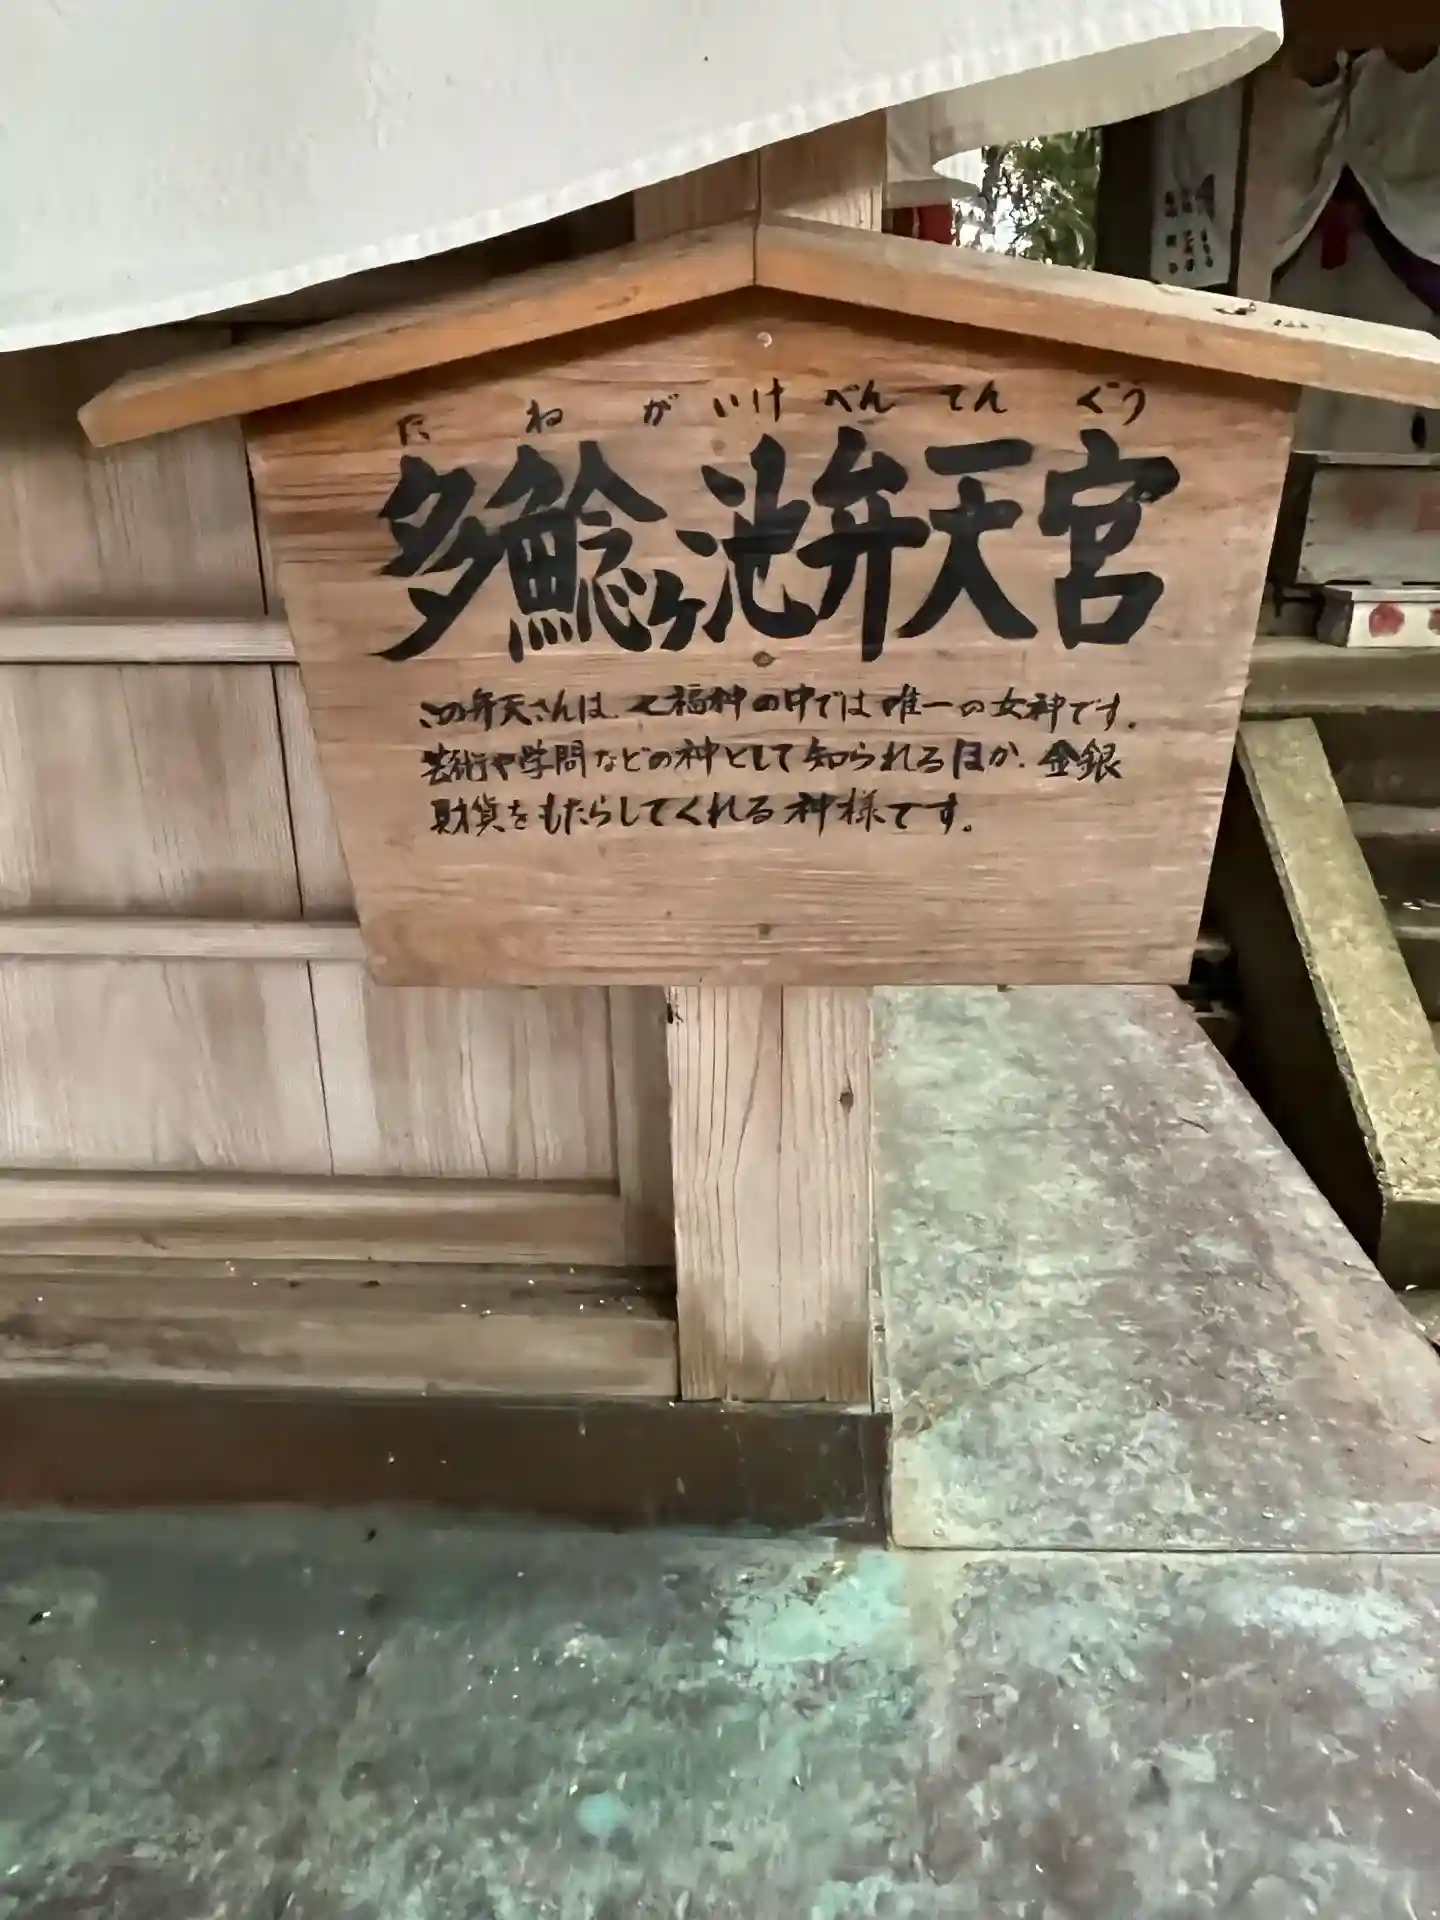 たねがいけべんてんぐう
多鯰ヶ池弁天宮
この弁天さんは、七福神の中では唯一の女神です。
芸術や学問などの神として知られるほか、金銀
財貨をもたらしてくれる神様です。